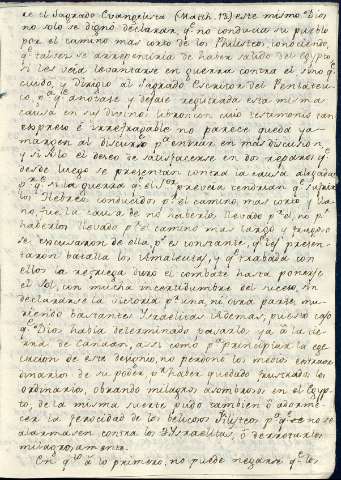 re el Sagrado Evangelista (Math. 13) este mismo Dios
no solo se dignó declarar, qe no conducia su pueblo
por el camino mas corto de los Philisteos, conociendo,
qe talvez se arrepentiria de haber salido del Egypto,
si les veia levantarse en guerra contra el sino qe
cuido, y dirigio al Sagrado Escritor del Pentateu-
co, pa qe anotase y dejase registrada esta misma
causa en sus divinos libros: con cuio testimonio tan
expreso é irrefragable no parece queda ya
margen al discurso pa entrar en mas discusion,
y si solo el deseo de satisfacerse en dos reparos qe
desde luego se presentan contra la causa alegada:
pr qe si la guerra qe el Sor preveia tendrian qe sufrir
los Hebreos conducidos pr el camino mas corto y lla-
no, fue la causa de no haberlos llevado pr el, no pr
haberlos llevado pr el camino mas largo y fragoso
se excusaron de ella, ps es constante, qe les presen-
taron batalla los Amalecitas, y qe trabada con
ellos la refriega duró el combate hasta ponerse
el Sol, con mucha incertidumbre del suceso, sin
declararse la victoria pr una, ni otra parte, mu-
riendo bastantes Ysraelitas. Ademas, puesto caso
qe Dios habia determinado pasarlos ya á la tie-
rra de Canaan, assi como pa principiar la eje-
cucion de este designio, no perdonó los medios extraor-
dinarios de su poder, pr haber quedado frustrados los
ordinarios, obrando milagros asombrosos en el Egyp-
to, de la misma suerte pudo tambien ó adorme-
cer la ferocidad de los belicosos Philisteos pa qe no se
alarmasen contra los Ysraelitas, ó derrotarlos
milagrosamente.
En qto á lo primero, no puede negarse qe los